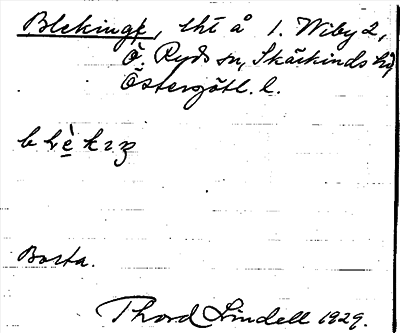 Blekinge, tht å 1. Wiby 2,
Ö. Ryds sn, Skärkinds hd
Östergötl. l.
Borta.
Thord Lindell 1929.